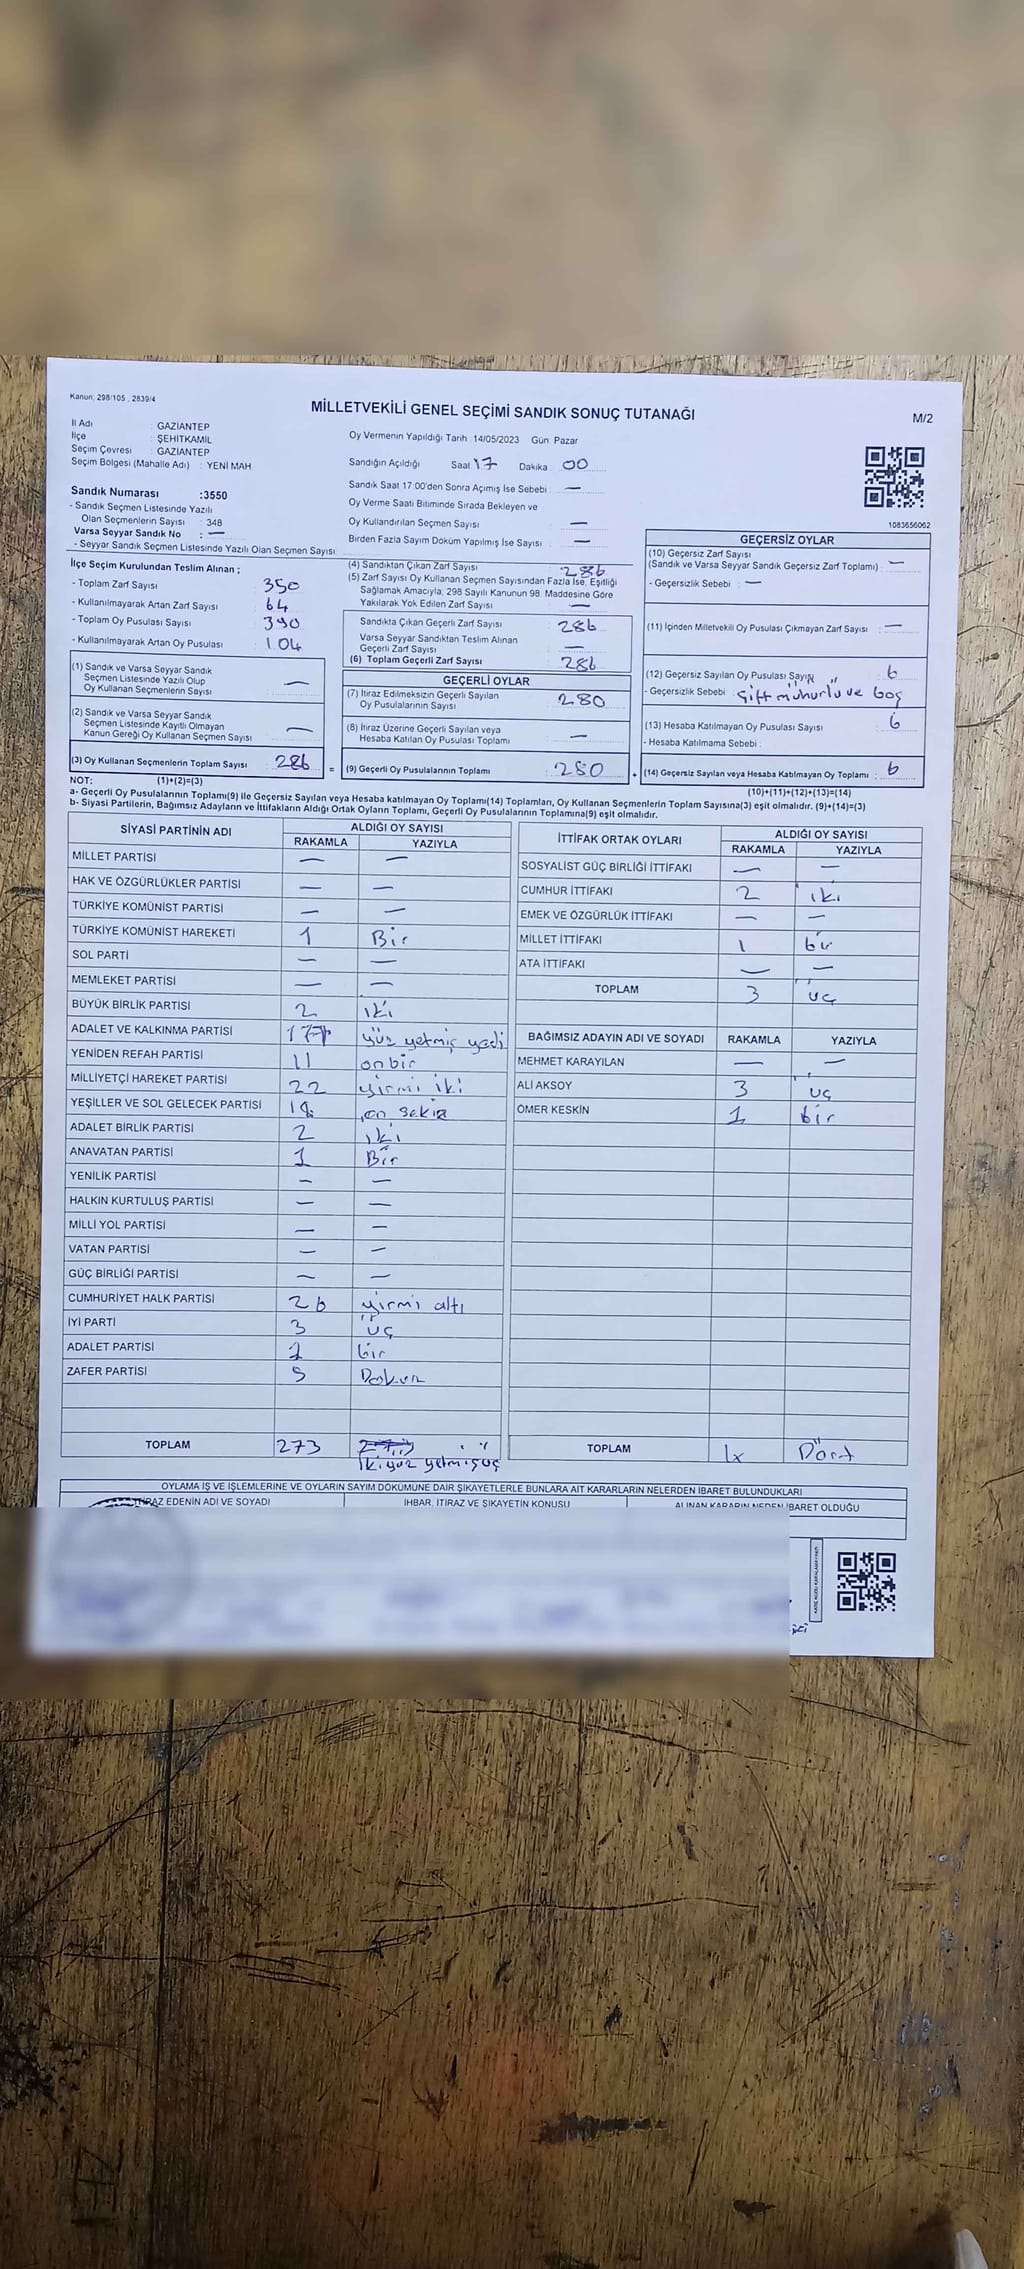 Kanun, 298/105 , 2839/4
MİLLETVEKİLİ GENEL SEÇİMİ SANDIK SONUÇ TUTANAĞI
M/2
İl Adı : GAZİANTEP
İlçe : ŞEHİTKAMİL
Seçim Çevresi : GAZİANTEP
Seçim Bölgesi (Mahalle Adı) : YENİ MAH.
Sandık Numarası :3550
- Sandık Seçmen Listesinde Yazılı
Olan Seçmenlerin Sayısı : 348
Varsa Seyyar Sandık No : —
- Seyyar Sandık Seçmen Listesinde Yazılı Olan Seçmen Sayısı :
Oy Vermenin Yapıldığı Tarih 14/05/2023 Gün Pazar
Sandığın Açıldığı Saat 17 Dakika 00
Sandık Saat 17:00'den Sonra Açımış İse Sebebi : —
Oy Verme Saati Bitiminde Sırada Bekleyen ve
Oy Kullandırılan Seçmen Sayısı —
Birden Fazla Sayım Döküm Yapılmış İse Sayısı : —
1083656062
İlçe Seçim Kurulundan Teslim Alınan ;
- Toplam Zarf Sayısı 350
- Kullanılmayarak Artan Zarf Sayısı : 64
- Toplam Oy Pusulası Sayısı 390
- Kullanılmayarak Artan Oy Pusulası : 104
(1) Sandık ve Varsa Seyyar Sandık
Seçmen Listesinde Yazılı Olup
Oy Kullanan Seçmenlerin Sayısı : —
(2) Sandık ve Varsa Seyyar Sandık
Seçmen Listesinde Kayıtlı Olmayan
Kanun Gereği Oy Kullanan Seçmen Sayısı : —
(3) Oy Kullanan Seçmenlerin Toplam Sayısı : 286
(4) Sandıktan Çıkan Zarf Sayısı : 286
(5) Zarf Sayısı Oy Kullanan Seçmen Sayısından Fazla İse, Eşitliği
Sağlamak Amacıyla, 298 Sayılı Kanunun 98. Maddesine Göre
Yakılarak Yok Edilen Zarf Sayısı : —
Sandıkta Çıkan Geçerli Zarf Sayısı : 286
Varsa Seyyar Sandıktan Teslim Alınan
Geçerli Zarf Sayısı : —
(6) Toplam Geçerli Zarf Sayısı : 286
GEÇERLİ OYLAR
(7) İtiraz Edilmeksizin Geçerli Sayılan
Oy Pusulalarının Sayısı : 280
(8) İtiraz Üzerine Geçerli Sayılan veya
Hesaba Katılan Oy Pusulası Toplamı : —
= (9) Geçerli Oy Pusulalarının Toplamı : 280
GEÇERSİZ OYLAR
(10) Geçersiz Zarf Sayısı
(Sandık ve Varsa Seyyar Sandık Geçersiz Zarf Toplamı) : —
- Geçersizlik Sebebi : —
(11) İçinden Milletvekili Oy Pusulası Çıkmayan Zarf Sayısı : —
(12) Geçersiz Sayılan Oy Pusulası Sayısı : 6
- Geçersizlik Sebebi : Çift mühürlü ve boş
(13) Hesaba Katılmayan Oy Pusulası Sayısı : 6
- Hesaba Katılmama Sebebi :
+ (14) Geçersiz Sayılan veya Hesaba Katılmayan Oy Toplamı : 6
NOT: (1)+(2)=(3)
(10)+(11)+(12)+(13)=(14)
a- Geçerli Oy Pusulalarının Toplamı(9) ile Geçersiz Sayılan veya Hesaba katılmayan Oy Toplamı(14) Toplamları, Oy Kullanan Seçmenlerin Toplam Sayısına(3) eşit olmalıdır. (9)+(14)=(3)
b- Siyasi Partilerin, Bağımsız Adayların ve İttifakların Aldığı Ortak Oyların Toplamı, Geçerli Oy Pusulalarının Toplamına(9) eşit olmalıdır.
SİYASİ PARTİNİN ADI ALDIĞI OY SAYISI
RAKAMLA YAZIYLA
MİLLET PARTİSİ — —
HAK VE ÖZGÜRLÜKLER PARTİSİ — —
TÜRKİYE KOMÜNİST PARTİSİ — —
TÜRKİYE KOMÜNİST HAREKETİ 1 Bir
SOL PARTİ — —
MEMLEKET PARTİSİ — —
BÜYÜK BİRLİK PARTİSİ 2 iki
ADALET VE KALKINMA PARTİSİ 177 yüz yetmiş yedi
YENİDEN REFAH PARTİSİ 11 onbir
MİLLİYETÇİ HAREKET PARTİSİ 22 yirmi iki
YEŞİLLER VE SOL GELECEK PARTİSİ 18 on sekiz
ADALET BİRLİK PARTİSİ 2 iki
ANAVATAN PARTİSİ 1 Bir
YENİLİK PARTİSİ — —
HALKIN KURTULUŞ PARTİSİ — —
MİLLİ YOL PARTİSİ — —
VATAN PARTİSİ — —
GÜÇ BİRLİĞİ PARTİSİ — —
CUMHURİYET HALK PARTİSİ 26 yirmi altı
İYİ PARTİ 3 üç
ADALET PARTİSİ 1 bir
ZAFER PARTİSİ 9 Dokuz
TOPLAM 273 ikiyüz yetmişüç
İTTİFAK ORTAK OYLARI ALDIĞI OY SAYISI
RAKAMLA YAZIYLA
SOSYALİST GÜÇ BİRLİĞİ İTTİFAKI — —
CUMHUR İTTİFAKI 2 iki
EMEK VE ÖZGÜRLÜK İTTİFAKI — —
MİLLET İTTİFAKI 1 bir
ATA İTTİFAKI — —
TOPLAM 3 üç
BAĞIMSIZ ADAYIN ADI VE SOYADI RAKAMLA YAZIYLA
MEHMET KARAYILAN — —
ALİ AKSOY 3 üç
ÖMER KESKİN 1 bir
TOPLAM Dört
OYLAMA İŞ VE İŞLEMLERİNE VE OYLARIN SAYIM DÖKÜMÜNE DAİR ŞİKAYETLERLE BUNLARA AİT KARARLARIN NELERDEN İBARET BULUNDUKLARI
İTİRAZ EDENİN ADI VE SOYADI İHBAR, İTİRAZ VE ŞİKAYETİN KONUSU ALINAN KARARIN NEDEN İBARET OLDUĞU